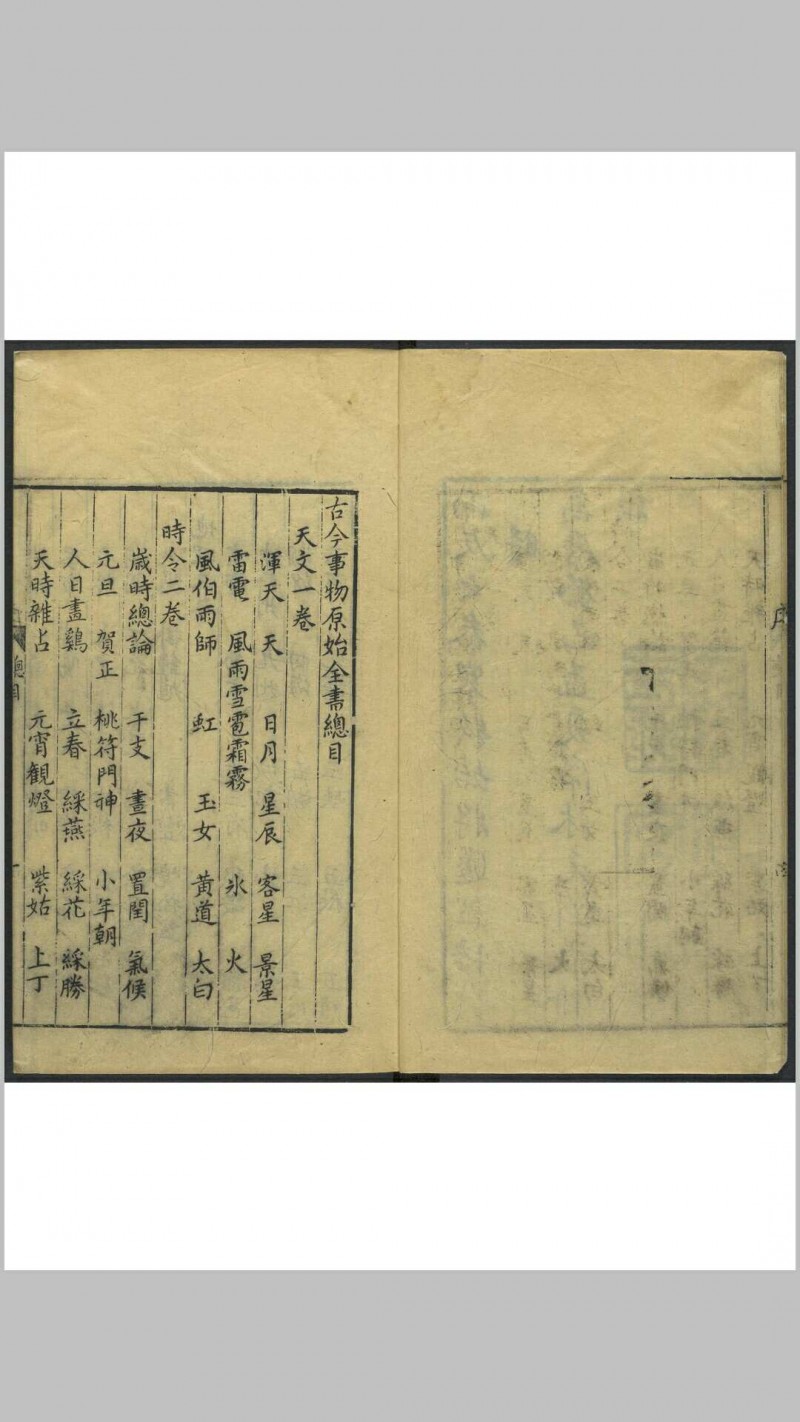 序
古今事物原始全書總目
天文一卷
渾天 天 日月 星辰 客星 景星
雷電 風雨雪雹霜霧 氷 火
風伯雨師 虹 玉女 黃道 太白
時令二卷
歲時總論 干支 晝夜 置閏 氣候
元旦 賀正 桃符門神 小年朝
人日畫鷄 立春 綵燕 綵花 綵勝
天時雜占 元宵観燈 紫姑 上丁
總目